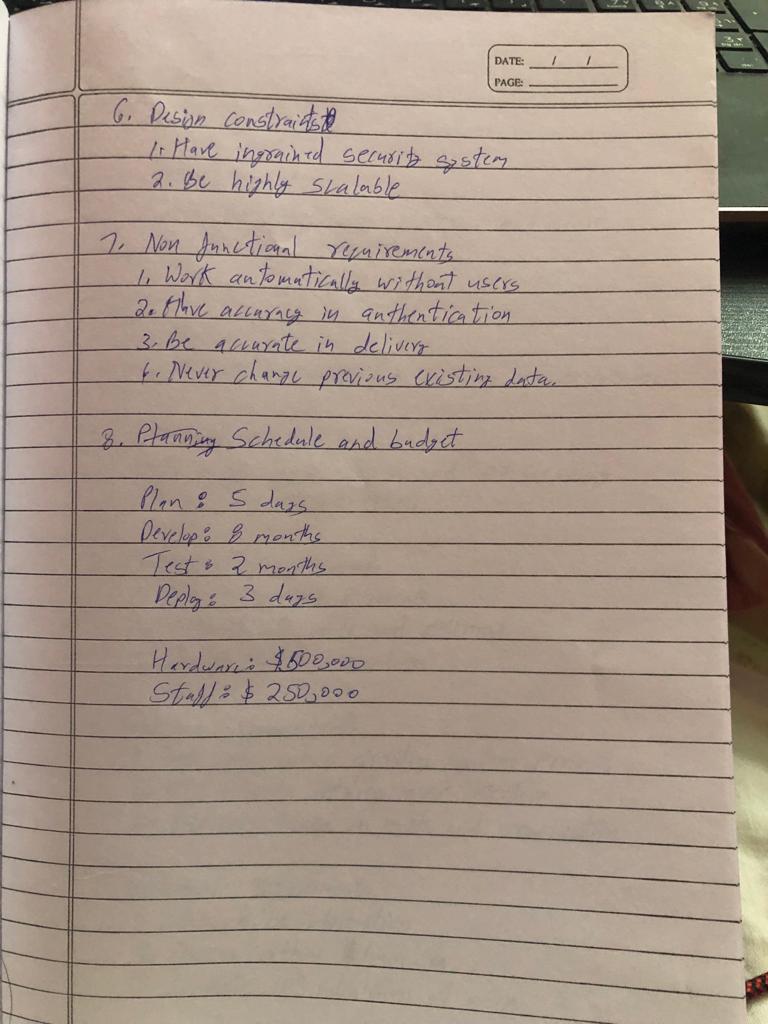 DATE: / /
PAGE:
6. Design constraints
1. Have ingrained security system
2. Be highly scalable
7. Non functional requirements
1. Work automatically without users
2. Have accuracy in authentication
3. Be accurate in delivery
4. Never change previous existing data.
8. Planning Schedule and budget
Plan: 5 days
Develop: 8 months
Test: 2 months
Deploy: 3 days
Hardware:
Staff: $ 250,000